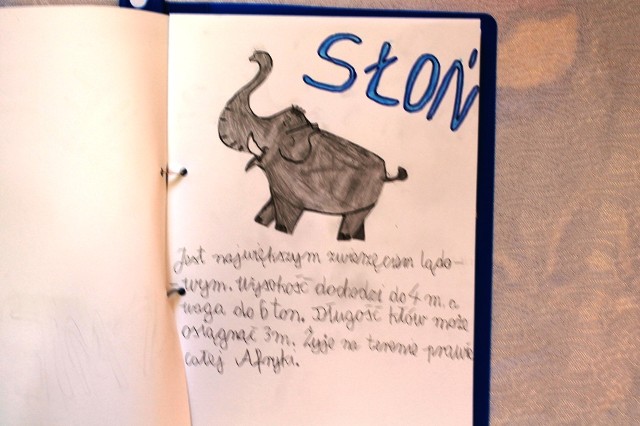 SŁOŃ
Jest największym zwierzęciem lądo-
wym. Wysokość dochodzi do 4 m. a
waga do 6 ton. Długość kłów może
osiągnać 3m. Żyje na terenie prawie
całej Afryki.